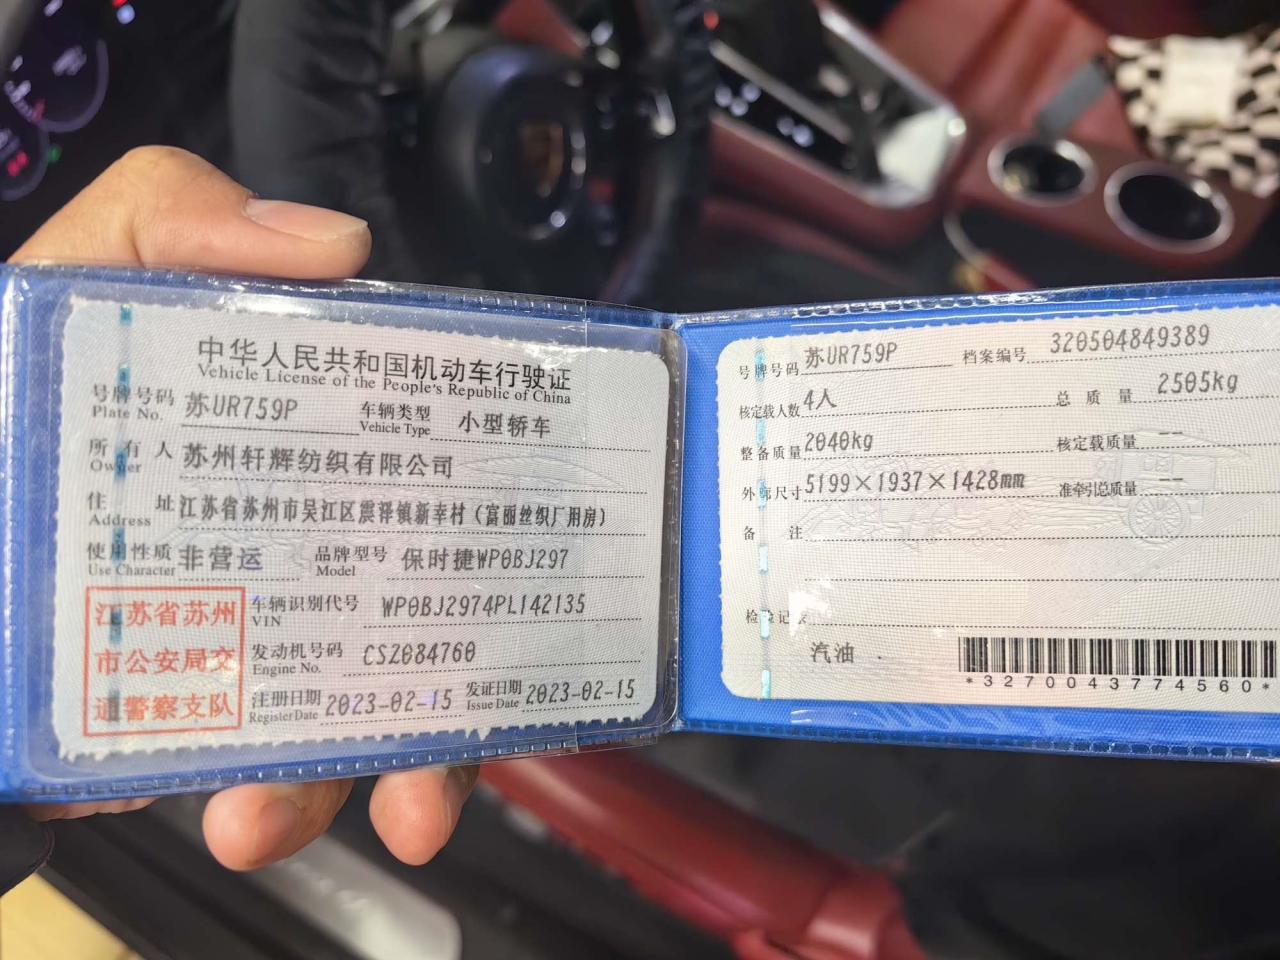 中华人民共和国机动车行驶证
Vehicle License of the People's Republic of China
号牌号码 苏UR759P 车辆类型 小型轿车
Plate No. Vehicle Type
所有人 苏州轩辉纺织有限公司
Owner
住址 江苏省苏州市吴江区震泽镇新幸村（富丽丝织厂用房）
Address
使用性质 非营运 品牌型号 保时捷WP0BJ297
Use Character Model
江苏省苏州
市公安局交
通警察支队
车辆识别代号 WP0BJ2974PL142135
VIN
发动机号码 CSZ084760
Engine No.
注册日期 2023-02-15 发证日期 2023-02-15
Register Date Issue Date
号牌号码 苏UR759P 档案编号 320504849389
核定载人数 4人 总质量 2505kg
整备质量 2040kg 核定载质量 --
外廓尺寸 5199×1937×1428mm 准牵引总质量 --
备注
检验记录
汽油
*3270043774560*